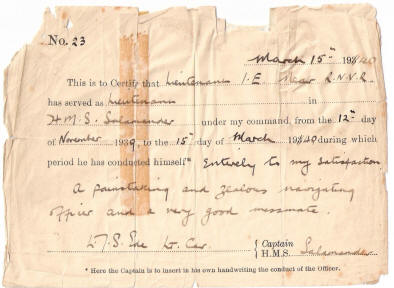 No. 23
March 15th 1940
This is to Certify that Lieutenant I. E. R.N.V.R
has served as Lieutenant in
H.M.S. Salamander under my command, from the 12th day
of November 1939, to the 15th day of March 1940 during which
period he has conducted himself* Entirely to my satisfaction
A painstaking and zealous navigating
officer and a very good messmate.
Lt. Cdr. Captain
H.M.S. Salamander
* Here the Captain is to insert in his own handwriting the conduct of the Officer.